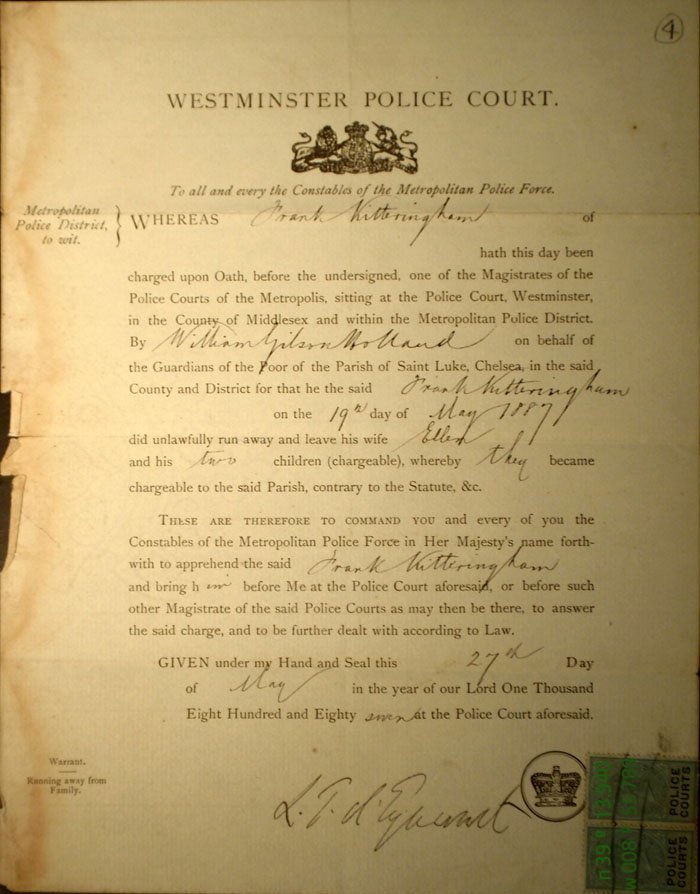 4
WESTMINSTER POLICE COURT.
To all and every the Constables of the Metropolitan Police Force.
Metropolitan
Police District,
to wit.
WHEREAS Frank Kitteringham of
hath this day been
charged upon Oath, before the undersigned, one of the Magistrates of the
Police Courts of the Metropolis, sitting at the Police Court, Westminster,
in the County of Middlesex and within the Metropolitan Police District.
By William Gilson Holland on behalf of
the Guardians of the Poor of the Parish of Saint Luke, Chelsea, in the said
County and District for that he the said Frank Kitteringham
on the 19th day of May 1887
did unlawfully run away and leave his wife Ellen
and his two children (chargeable), whereby they became
chargeable to the said Parish, contrary to the Statute, &c.
THESE ARE THEREFORE TO COMMAND YOU and every of you the
Constables of the Metropolitan Police Force in Her Majesty's name forth-
with to apprehend the said Frank Kitteringham
and bring him before Me at the Police Court aforesaid, or before such
other Magistrate of the said Police Courts as may then be there, to answer
the said charge, and to be further dealt with according to Law.
GIVEN under my Hand and Seal this 27th Day
of May in the year of our Lord One Thousand
Eight Hundred and Eighty seven at the Police Court aforesaid.
Warrant.
Running away from
Family.
L. T. d'Eyncourt
POLICE
COURTS
POLICE
COURTS